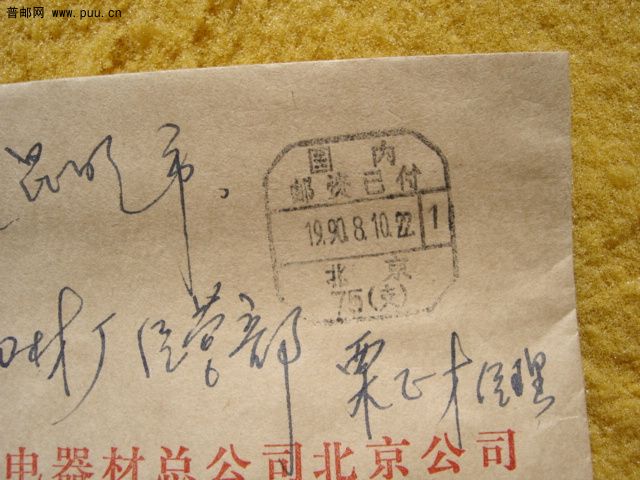 普邮网 www.puu.cn
昆明市,
国内
邮资已付
19.90.8.10.22. 1
北京
75(支)
材厂经营部 栗正才经理
电器材总公司北京公司